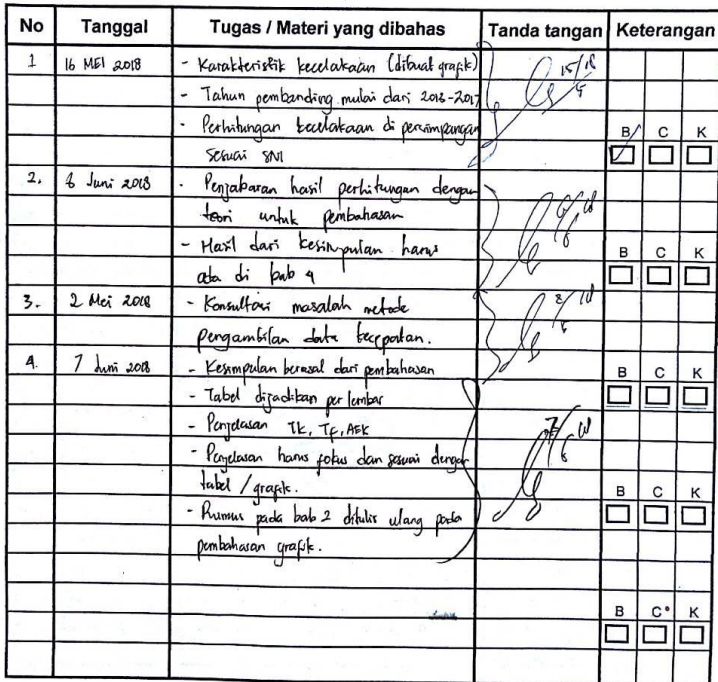 No Tanggal Tugas / Materi yang dibahas Tanda tangan Keterangan
1 16 MEI 2018 - Karakteristik kecelakaan (dibuat grafik)
- Tahun pembanding mulai dari 2013-2017
- Perhitungan kecelakaan di persimpangan
B C K
sesuai SNI
2. 6 Juni 2018 - Penjabaran hasil perhitungan dengan
teori untuk pembahasan
- Hasil dari kesimpulan harus
B C K
ada di bab 4
3. 2 Mei 2018 - Konsultasi masalah metode
pengambilan data kecepatan.
4. 7 Juni 2018 - Kesimpulan berasal dari pembahasan
B C K
- Tabel dijadikan per lembar
- Penjelasan TK, TF, AEK
- Penjelasan harus fokus dan sesuai dengan
tabel / grafik.
B C K
- Rumus pada bab 2 ditulis ulang pada
pembahasan grafik.
B C K